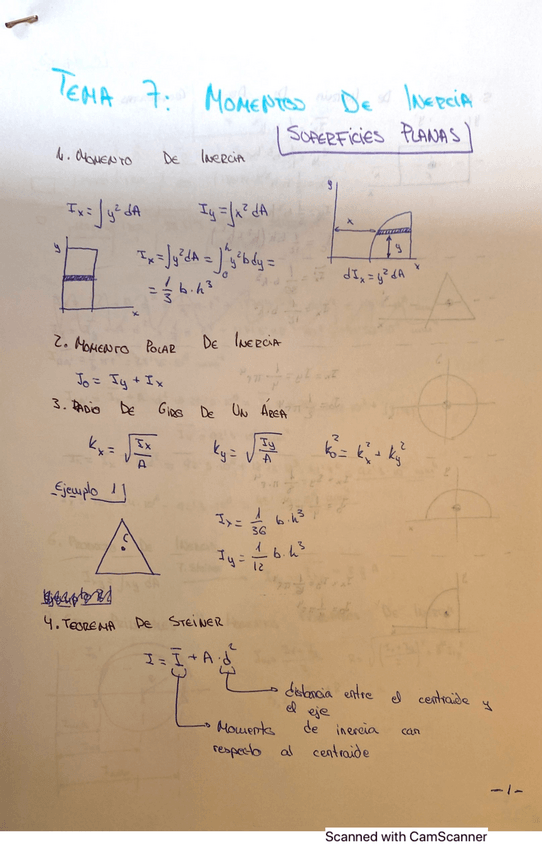 TEMA 7: MOMENTOS DE INERCIA
(SUPERFICIES PLANAS)
1. MOMENTO DE INERCIA
Ix = ∫ y² dA    Iy = ∫ x² dA
y
x
y
x
dIx = y² dA
y
x
Ix = ∫ y² dA = ∫₀ʰ y² b dy =
= 1/3 b · h³
2. MOMENTO POLAR DE INERCIA
Jo = Iy + Ix
3. RADIO DE GIRO DE UN ÁREA
kx = √(Ix/A)    ky = √(Iy/A)    ko² = kx² + ky²
Ejemplo 1
C
Ix = 1/36 b · h³
Iy = 1/12 b · h³
4. TEOREMA DE STEINER
I = Ī + A · d²
distancia entre el centroide y
el eje
Momento de inercia con
respecto al centroide
-1-
Scanned with CamScanner